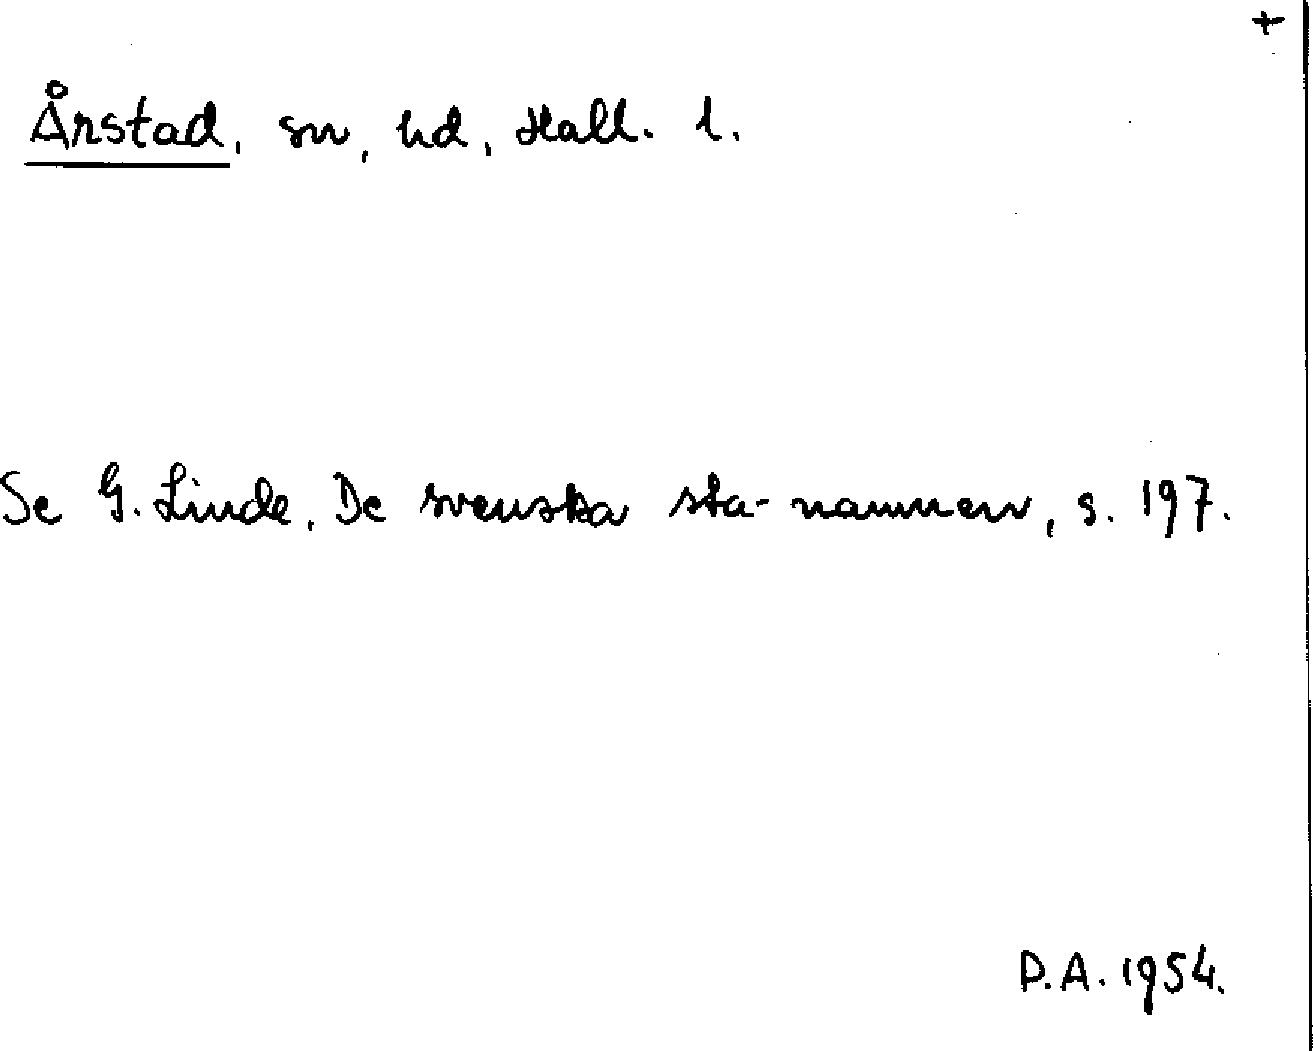 +
Årstad, sn, hd, Hall. l.
Se G. Linde, De svenska sta-namnen, s. 197.
D.A. 1954.